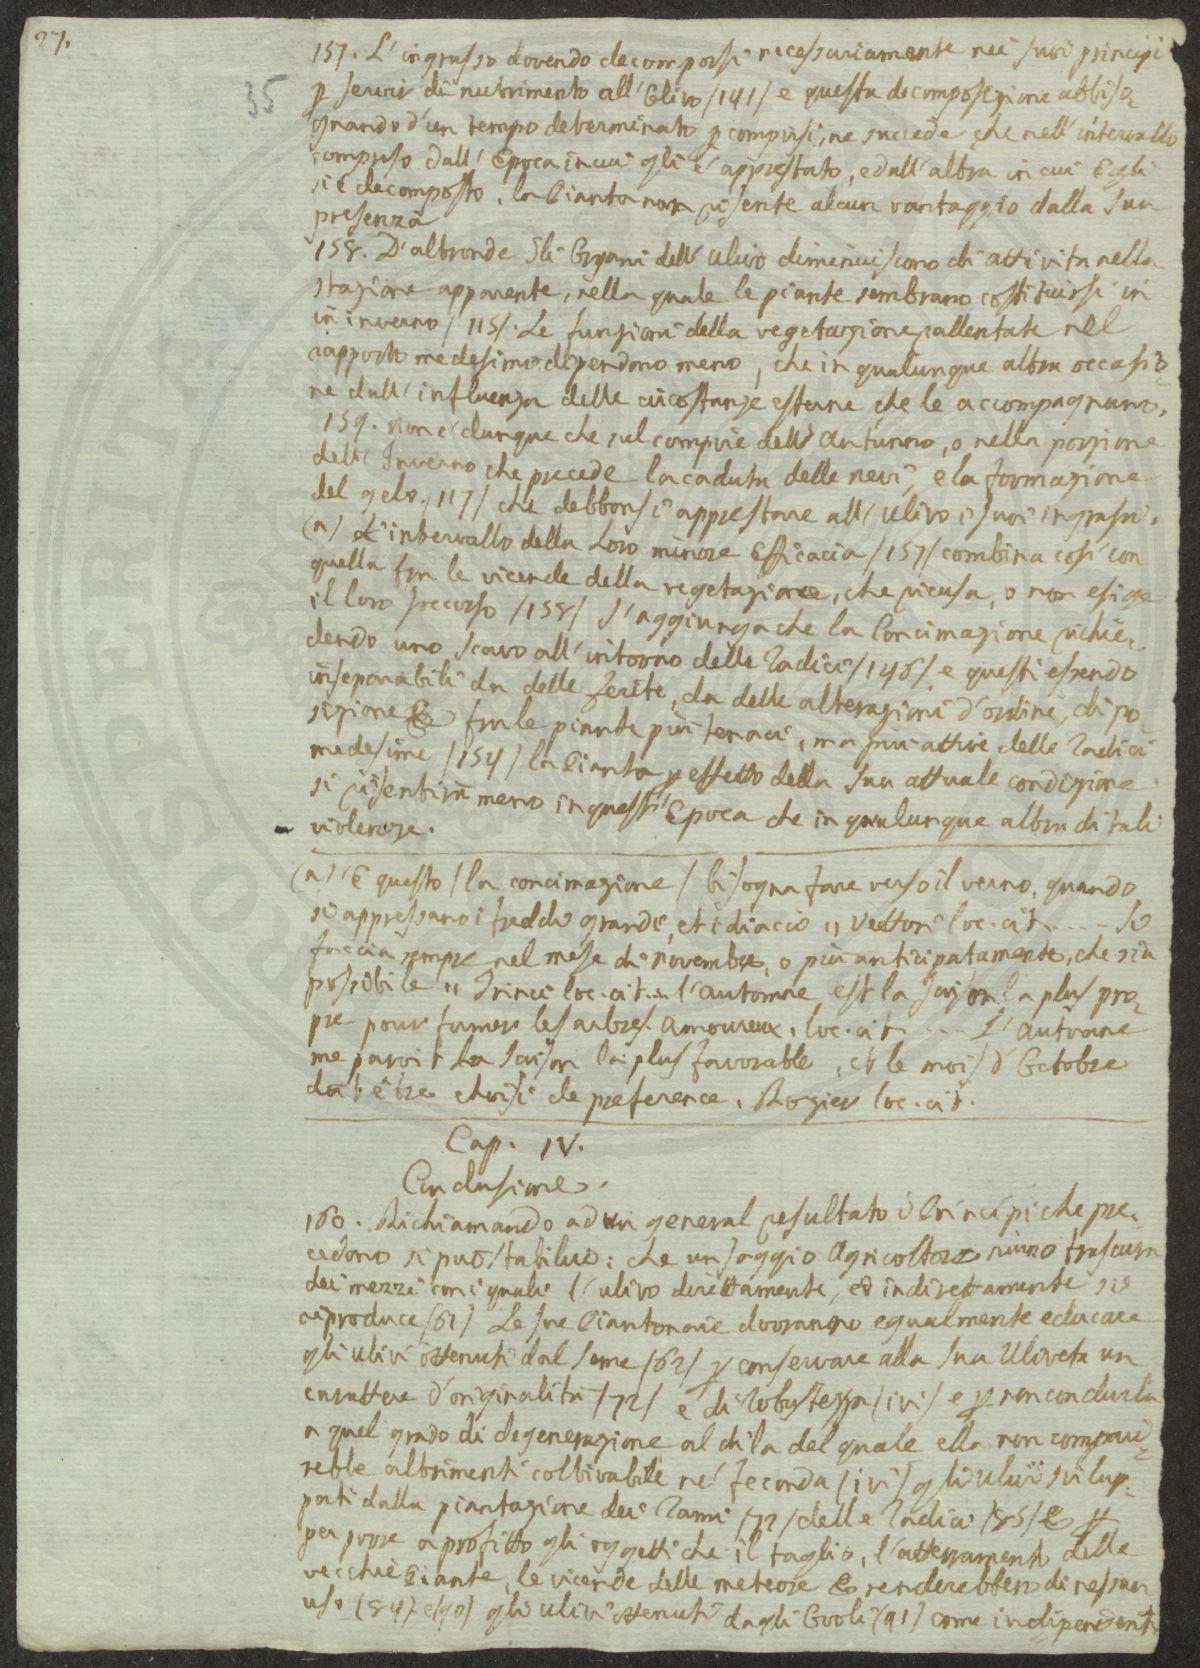 27.
35
157. L'ingrasso dovendo decomporsi necessariamente nei suoi principi
p servir di nutrimento all'Ulivo /141/ e questa decomposizione abbiso=
gnando d'un tempo determinato p compirsi, ne succede che nell'intervallo
compreso dall'Epoca in cui gli è apprestato, e dall'altra in cui Egli
si è decomposto, la Pianta non risente alcun vantaggio dalla sua
presenza
158. D'altronde Gli Organi dell'Ulivo diminuiscono di attività nella
stazione apparente, nella quale le piante sembrano costituirsi in
in inverno /115/. Le funzioni della vegetazione rallentate nel
rapporto medesimo dipendono meno, che in qualunque altra occasio=
ne dall'influenza delle circostanze esterne che le accompagnano.
159. Non è dunque che sul compire dell'Autunno, o nella porzione
dell'Inverno che precede la caduta delle nevi, e la formazione
del gelo /117/ che debbonsi apprestare all'Ulivo i suoi ingrassi.
(a) L'intervallo della Loro minore Efficacia /157/ combina così con
quella fra le vicende della vegetazione, che ricusa, o non esige
il loro soccorso /158/ S'aggiunga che la Concimazione richie=
dendo uno scavo all'intorno delle Radici /146/ e questi essendo
inseparabili da delle ferite, da delle alterazioni d'ordine, di po=
sizione & fra le piante più tenaci, ma più attive delle Radici
medesime /154/ la Pianta p effetto della sua attuale condizione
si risentirà meno in quest'Epoca che in qualunque altra di tali
violenze.
(a) È questo /la concimazione/ bisogna fare verso il verno, quando
si appressano i freddi grandi, et i diacci " Vettori loc. cit. .... Si
faccia sempre nel mese di Novembre, o più anticipatamente, che sia
possibile " Trinci loc. cit. ... l'automne est la saison la plus pro=
pre pour fumer les arbres. Amoureux. loc. cit .... L'automne
me paroit La saison la plus favorable, et le mois d'Octobre
doit être choisi de preference. Rozier loc. cit.
Cap. IV.
Conclusione.
160. Richiamando ad un general resultato i Principi che pre=
cedono si può stabilire: che un saggio Agricoltore niuno trascura
dei mezzi con i quali l'ulivo direttamente, ed indirettamente si
riproduce /61/ Le sue Piantonaie dovranno egualmente educare
gli ulivi ottenuti dal seme /62/ p conservare alla sua Uliveta un
carattere d'originalità /72/ e di Robustezza /ivi/ e p non condurla
a quel grado di degenerazione al di la del quale ella non compari=
rebbe altrimenti coltivabile nè feconda /ivi/ gli ulivi svilup=
pati dalla piantazione dei Rami /72/ delle Radici /85/ &
per porre a profitto gli oggetti che il taglio, l'atterramento delle
vecchie Piante, le vicende delle meteore & renderebbero di nessun
uso (84) e (90) gli ulivi ottenuti dagli Uvoli (91) come indipendenti